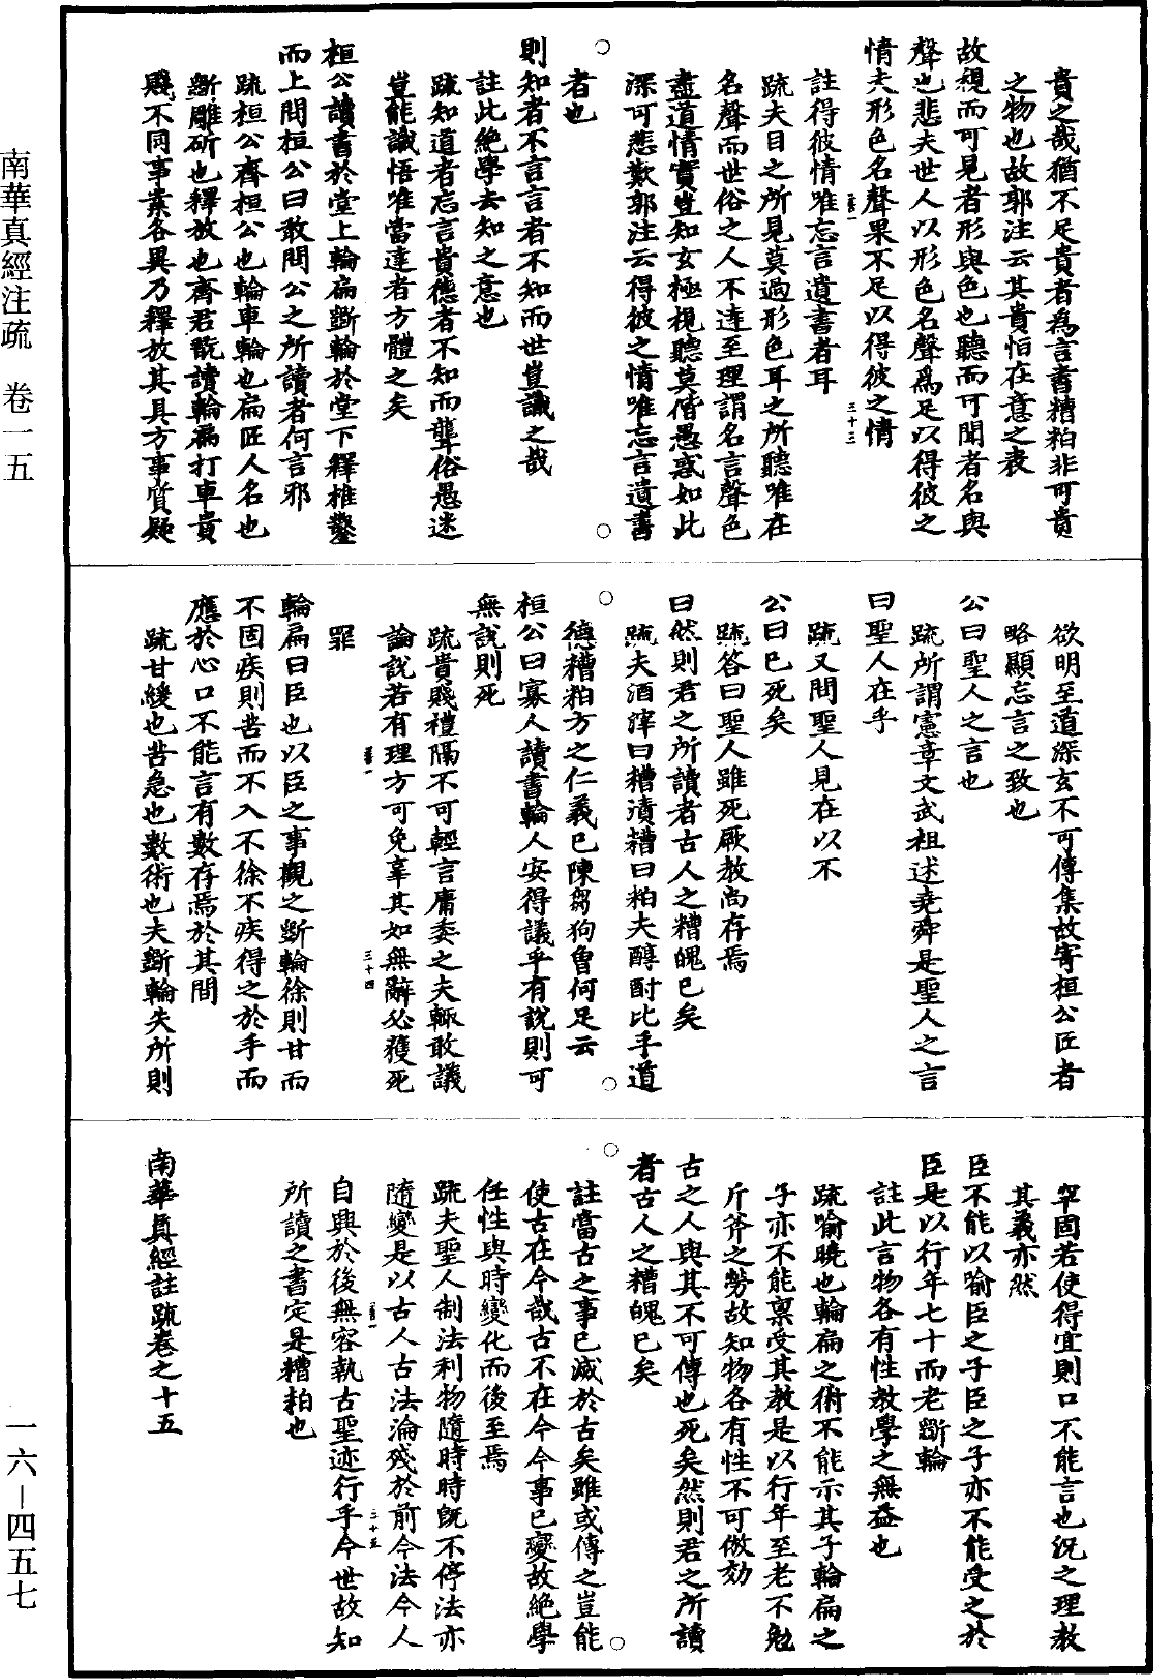 貴之哉猶不足貴者為言書糟粕非可貴
之物也故郭注云其貴恒在意之表
故視而可見者形與色也聽而可聞者名與
聲也悲夫世人以形色名聲為足以得彼之
情夫形色名聲果不足以得彼之情
註得彼情唯忘言遺書者耳
疏夫目之所見莫過形色耳之所聽唯在
名聲而世俗之人不達至理謂名言聲色
盡道情實豈知玄極視聽莫偕愚惑如此
深可悲歎郭注云得彼之情唯忘言遺書
者也
則知者不言言者不知而世豈識之哉
註此絕學去知之意也
疏知道者忘言貴德者不知而聾俗愚迷
豈能識悟唯當達者方體之矣
桓公讀書於堂上輪扁斲輪於堂下釋椎鑿
而上問桓公曰敢問公之所讀者何言邪
疏桓公齊桓公也輪車輪也扁匠人名也
斲雕斫也釋放也齊君既讀輪扁打車貴
賤不同事業各異乃釋放其具方事質疑
欲明至道深玄不可傳集故寄桓公匠者
略顯忘言之致也
公曰聖人之言也
疏所謂憲章文武祖述堯舜是聖人之言
曰聖人在乎
疏又問聖人見在以不
公曰已死矣
疏答曰聖人雖死厥教尚存焉
曰然則君之所讀者古人之糟魄已矣
疏夫酒滓曰糟漬糟曰粕夫醇酎比乎道
德糟粕方之仁義已陳芻狗曾何足云
桓公曰寡人讀書輪人安得議乎有說則可
無說則死
疏貴賤禮隔不可輕言庸委之夫輒敢議
論說若有理方可免辜其如無辭必獲死
罪
輪扁曰臣也以臣之事觀之斲輪徐則甘而
不固疾則苦而不入不徐不疾得之於手而
應於心口不能言有數存焉於其間
疏甘緩也苦急也數術也夫斲輪失所則
罕固若使得宜則口不能言也況之理教
其義亦然
臣不能以喻臣之子臣之子亦不能受之於
臣是以行年七十而老斲輪
註此言物各有性教學之無益也
疏喻曉也輪扁之術不能示其子輪扁之
子亦不能稟受其教是以行年至老不勉
斤斧之勞故知物各有性不可倣効
古之人與其不可傳也死矣然則君之所讀
者古人之糟魄已矣
註當古之事已滅於古矣雖或傳之豈能
使古在今哉古不在今今事已變故絕學
任性與時變化而後至焉
疏夫聖人制法利物隨時時既不停法亦
隨變是以古人古法淪殘於前今法今人
自興於後無容執古聖迹行乎今世故知
所讀之書定是糟粕也
南華真經註疏卷之十五
南華真經注疏 卷一五
一六—四五七
三十三
三十四
三十五